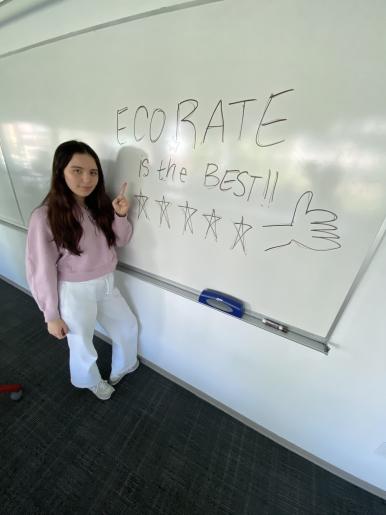 ECO RATE
is the BEST!!